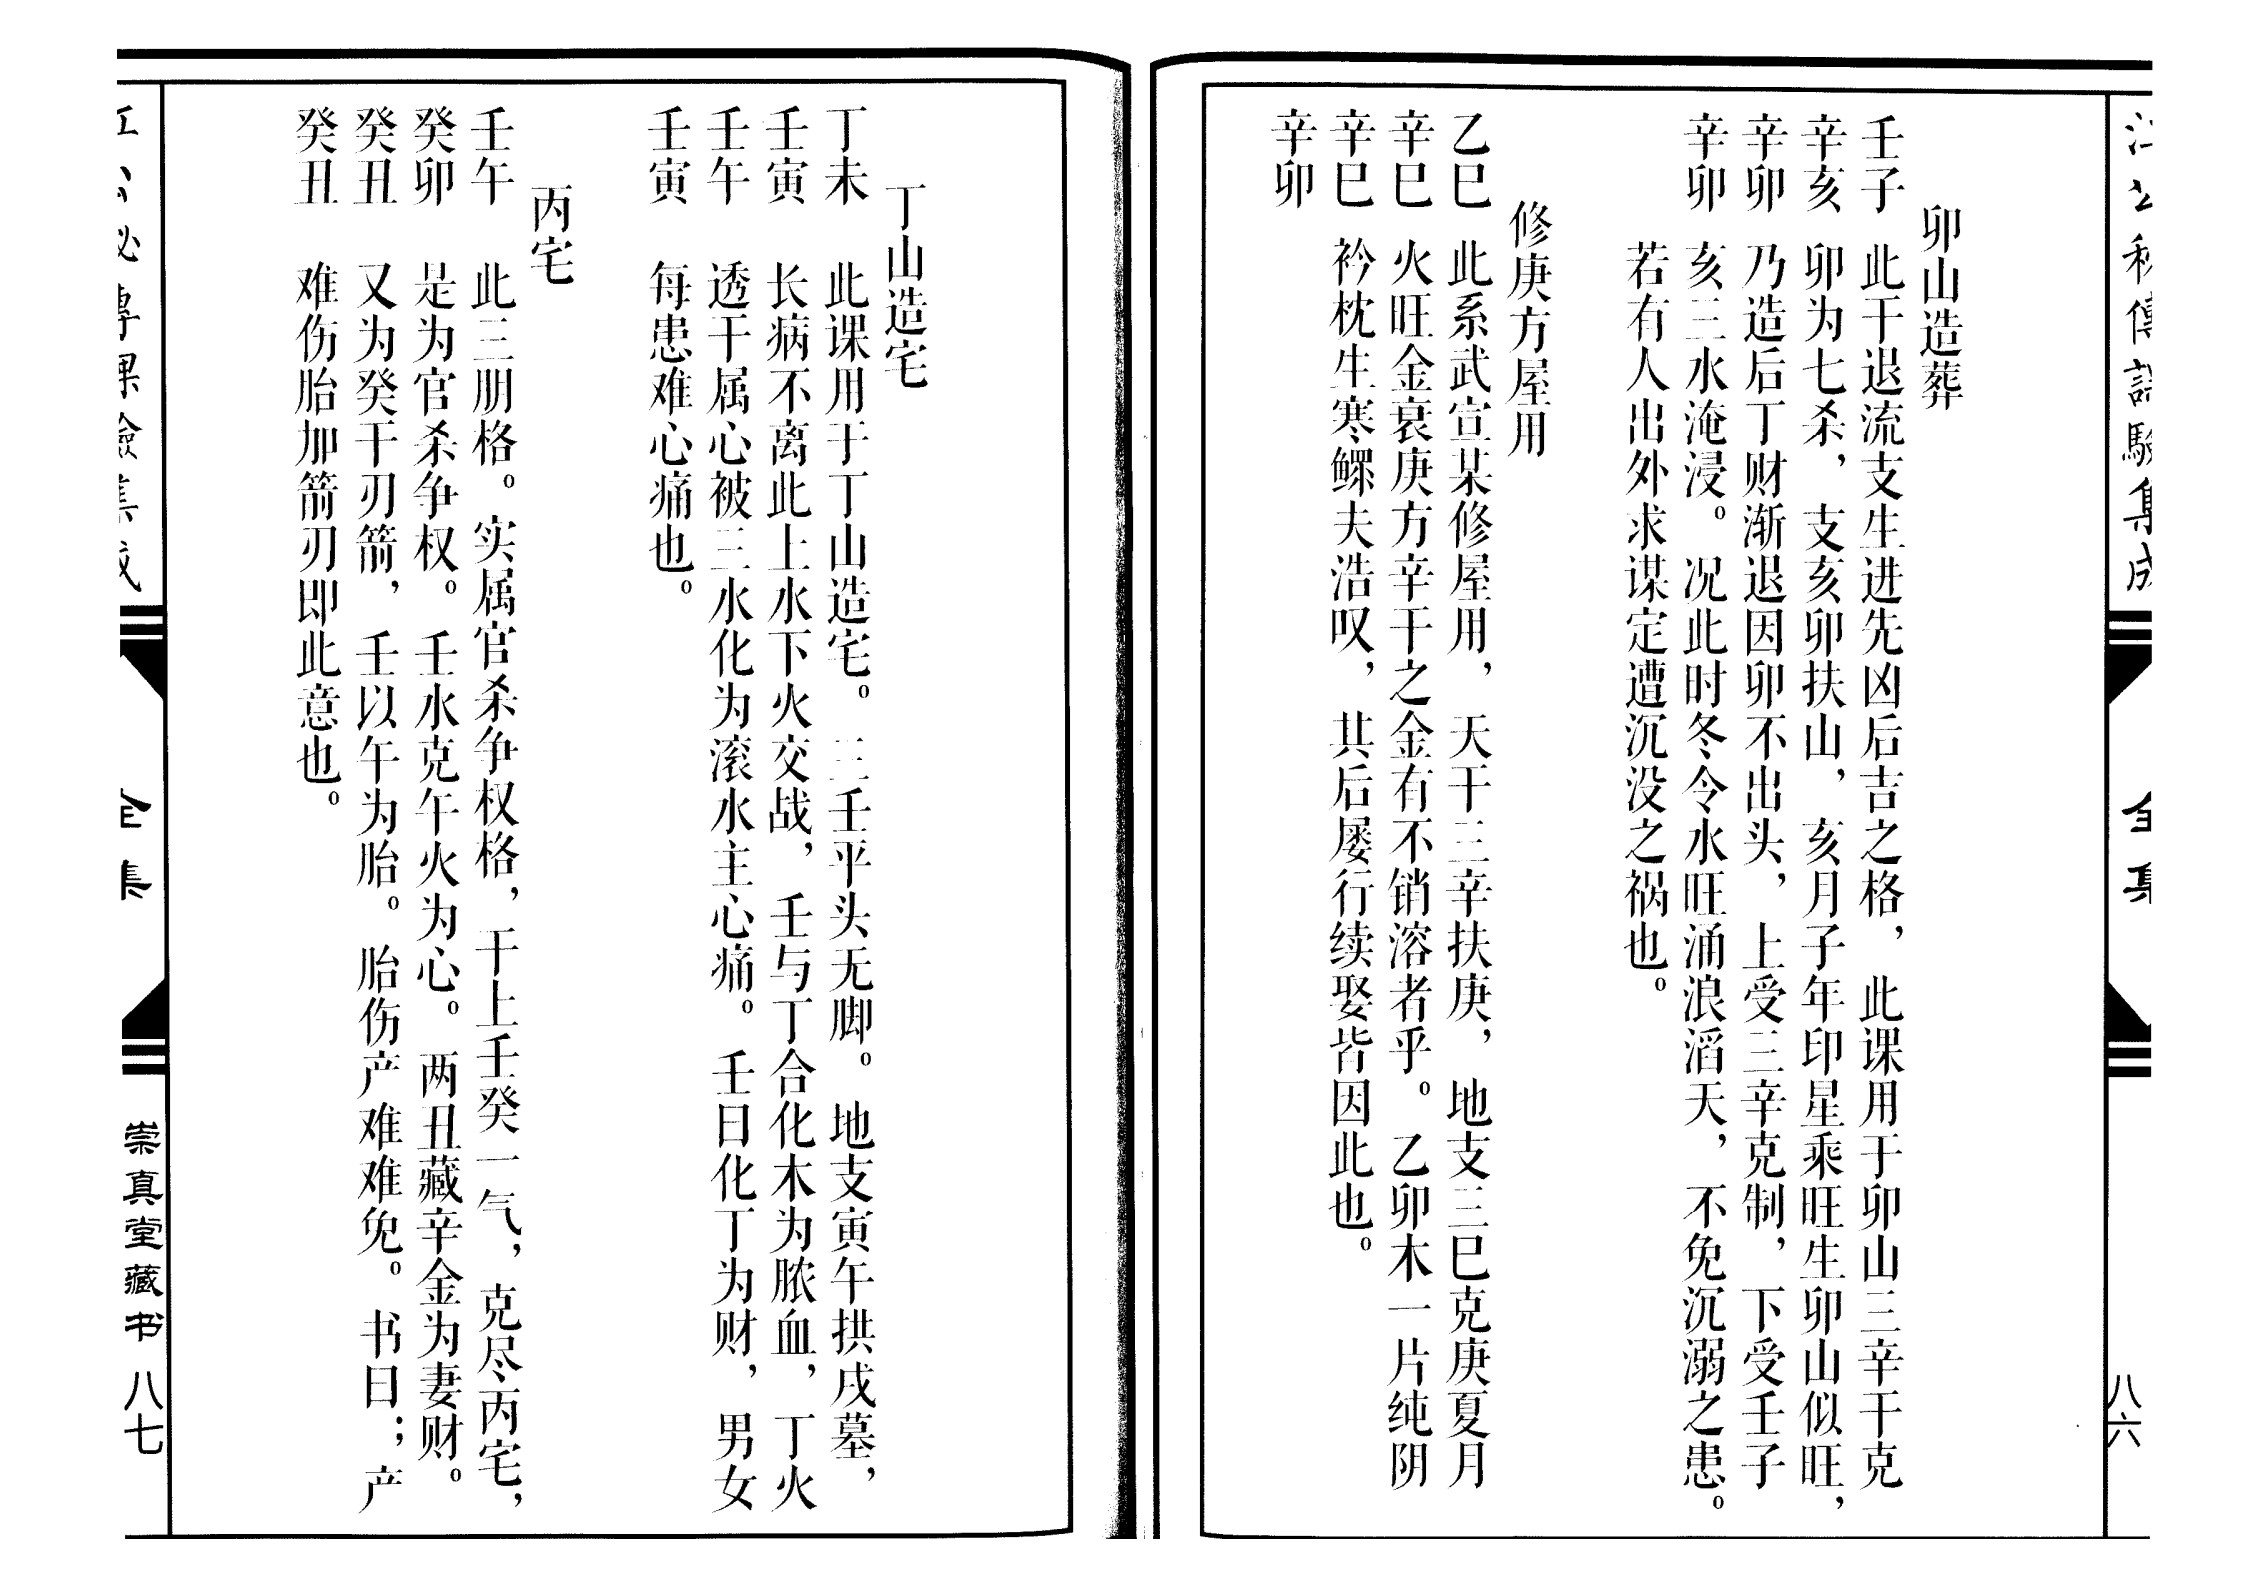 江公秘傳課驗集成
全集
八六
卯山造葬
壬子 此干退流支生进先凶后吉之格，此课用于卯山三辛干克
辛亥 卯为七杀，支亥卯扶山，亥月子年印星乘旺生卯山似旺，
辛卯 乃造后丁财渐退因卯不出头，上受三辛克制，下受壬子
辛卯 亥三水淹浸。况此时冬令水旺涌浪滔天，不免沉溺之患。
若有人出外求谋定遭沉没之祸也。
修庚方屋用
乙巳 此系武宣某修屋用，天干三辛扶庚，地支三巳克庚夏月
辛巳 火旺金衰庚方辛干之金有不销溶者乎。乙卯木一片纯阴
辛巳 衾枕生寒鳏夫浩叹，其后屡行续娶皆因此也。
辛卯
丁山造宅
丁未 此课用于丁山造宅。三壬平头无脚。地支寅午拱戌墓，
壬寅 长病不离此上水下火交战，壬与丁合化木为脓血，丁火
壬午 透干属心被三水化为滚水主心痛。壬日化丁为财，男女
壬寅 每患难心痛也。
丙宅
壬午 此三朋格。实属官杀争权格，干上壬癸一气，克尽丙宅，
癸卯 是为官杀争权。壬水克午火为心。两丑藏辛金为妻财。
癸丑 又为癸干刃箭，壬以午为胎。胎伤产难难免。书曰；产
癸丑 难伤胎加箭刃即此意也。
江公秘專課驗集成
全集
崇真堂藏书
八七